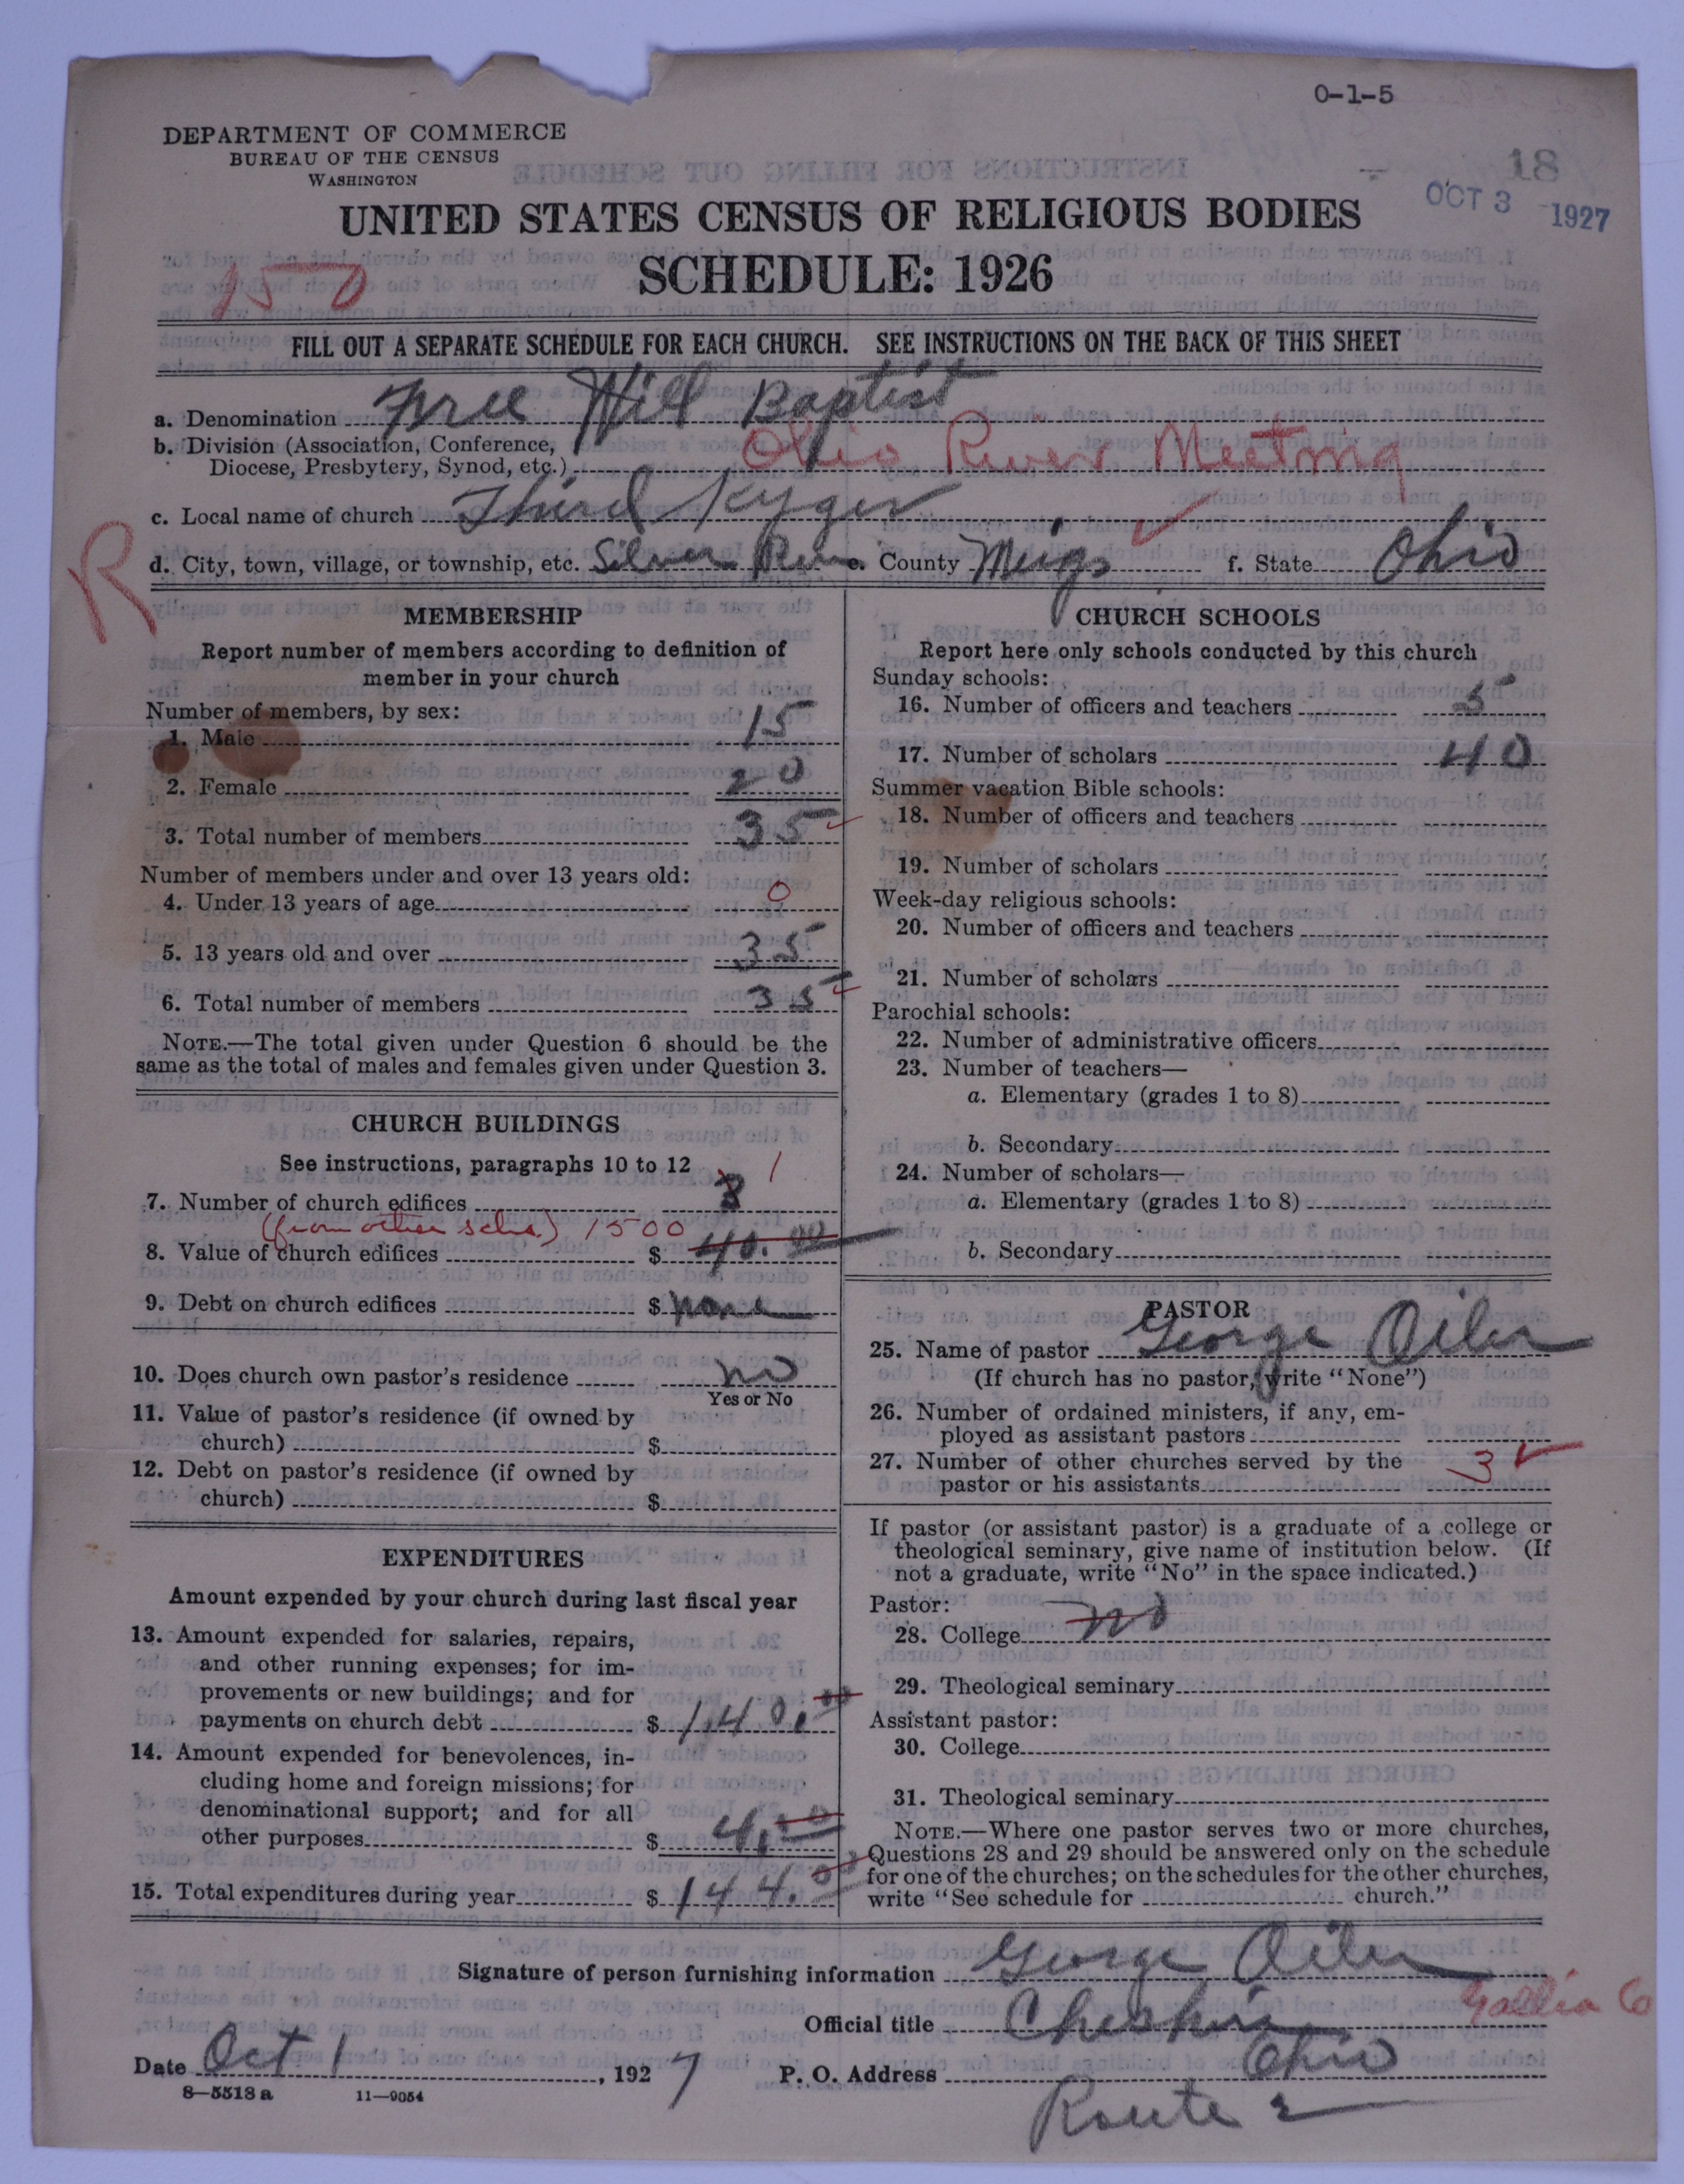 0-1-5
DEPARTMENT OF COMMERCE
BUREAU OF THE CENSUS
WASHINGTON
18
OCT 3 1927
UNITED STATES CENSUS OF RELIGIOUS BODIES
SCHEDULE: 1926
150
FILL OUT A SEPARATE SCHEDULE FOR EACH CHURCH. SEE INSTRUCTIONS ON THE BACK OF THIS SHEET
a. Denomination Free Will Baptist
b. Division (Association, Conference,
Diocese, Presbytery, Synod, etc.) Ohio River Meeting
c. Local name of church Third Kyger
R
d. City, town, village, or township, etc. Silver Run e. County Meigs f. State Ohio
MEMBERSHIP
Report number of members according to definition of
member in your church
Number of members, by sex:
1. Male 15
2. Female 20
3. Total number of members 35
Number of members under and over 13 years old:
4. Under 13 years of age 0
5. 13 years old and over 35
6. Total number of members 35
NOTE.—The total given under Question 6 should be the
same as the total of males and females given under Question 3.
CHURCH BUILDINGS
See instructions, paragraphs 10 to 12
7. Number of church edifices 3 1
(from other sche.) 1500
8. Value of church edifices $ 40.00
9. Debt on church edifices $ none
10. Does church own pastor's residence no
Yes or No
11. Value of pastor's residence (if owned by
church) $
12. Debt on pastor's residence (if owned by
church) $
EXPENDITURES
Amount expended by your church during last fiscal year
13. Amount expended for salaries, repairs,
and other running expenses; for im-
provements or new buildings; and for
payments on church debt $ 140.00
14. Amount expended for benevolences, in-
cluding home and foreign missions; for
denominational support; and for all
other purposes $ 4.00
15. Total expenditures during year $ 144.00
CHURCH SCHOOLS
Report here only schools conducted by this church
Sunday schools:
16. Number of officers and teachers 5
17. Number of scholars 40
Summer vacation Bible schools:
18. Number of officers and teachers
19. Number of scholars
Week-day religious schools:
20. Number of officers and teachers
21. Number of scholars
Parochial schools:
22. Number of administrative officers
23. Number of teachers—
a. Elementary (grades 1 to 8)
b. Secondary
24. Number of scholars—
a. Elementary (grades 1 to 8)
b. Secondary
PASTOR
25. Name of pastor George Oiler
(If church has no pastor, write "None")
26. Number of ordained ministers, if any, em-
ployed as assistant pastors
27. Number of other churches served by the
pastor or his assistants 3
If pastor (or assistant pastor) is a graduate of a college or
theological seminary, give name of institution below. (If
not a graduate, write "No" in the space indicated.)
Pastor:
28. College no
29. Theological seminary
Assistant pastor:
30. College
31. Theological seminary
NOTE.—Where one pastor serves two or more churches,
Questions 28 and 29 should be answered only on the schedule
for one of the churches; on the schedules for the other churches,
write "See schedule for church."
Signature of person furnishing information George Oiler
Official title Cheshire Gallia Co
Date Oct 1, 1927 P. O. Address Ohio
8-5518 a 11-9054
Route 2